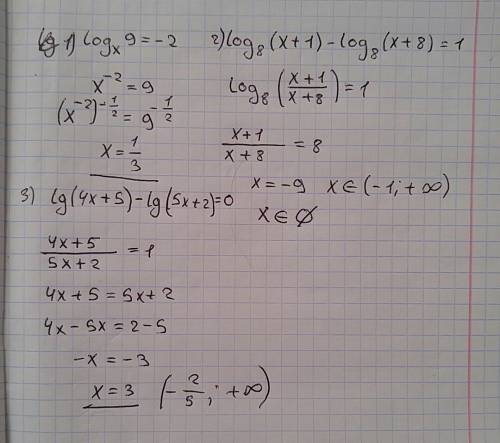 1) log_x 9 = -2
x^{-2} = 9
(x^{-2})^{-1/2} = 9^{-1/2}
x = 1/3
2) log_8 (x+1) - log_8 (x+8) = 1
log_8 ((x+1)/(x+8)) = 1
(x+1)/(x+8) = 8
x = -9 x ∈ (-1; +∞)
x ∈ ∅
3) lg(4x+5) - lg(5x+2) = 0
(4x+5)/(5x+2) = 1
4x + 5 = 5x + 2
4x - 5x = 2 - 5
-x = -3
x = 3 (-2/5; +∞)